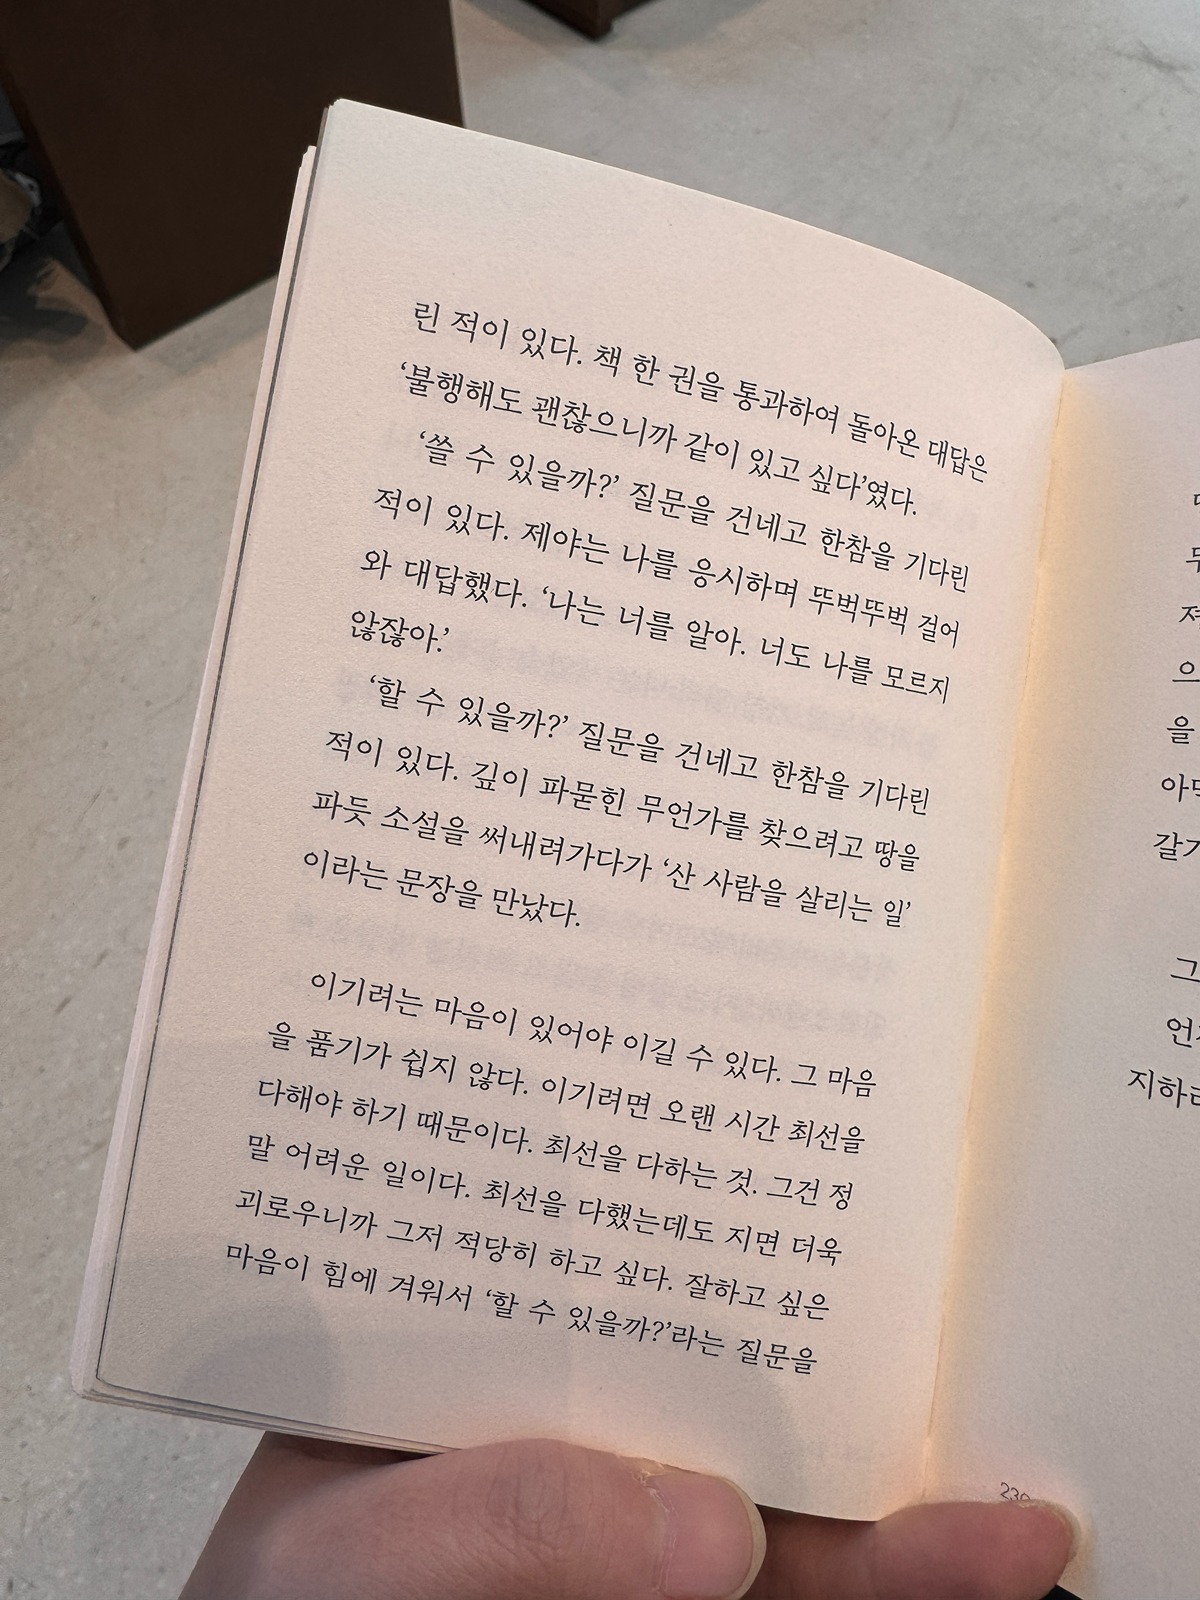 린 적이 있다. 책 한 권을 통과하여 돌아온 대답은
‘불행해도 괜찮으니까 같이 있고 싶다’였다.
‘쓸 수 있을까?’ 질문을 건네고 한참을 기다린
적이 있다. 제야는 나를 응시하며 뚜벅뚜벅 걸어
와 대답했다. ‘나는 너를 알아. 너도 나를 모르지
않잖아.’
‘할 수 있을까?’ 질문을 건네고 한참을 기다린
적이 있다. 깊이 파묻힌 무언가를 찾으려고 땅을
파듯 소설을 써내려가다가 ‘산 사람을 살리는 일’
이라는 문장을 만났다.
이기려는 마음이 있어야 이길 수 있다. 그 마음
을 품기가 쉽지 않다. 이기려면 오랜 시간 최선을
다해야 하기 때문이다. 최선을 다하는 것. 그건 정
말 어려운 일이다. 최선을 다했는데도 지면 더욱
괴로우니까 그저 적당히 하고 싶다. 잘하고 싶은
마음이 힘에 겨워서 ‘할 수 있을까?’라는 질문을
으
을
그